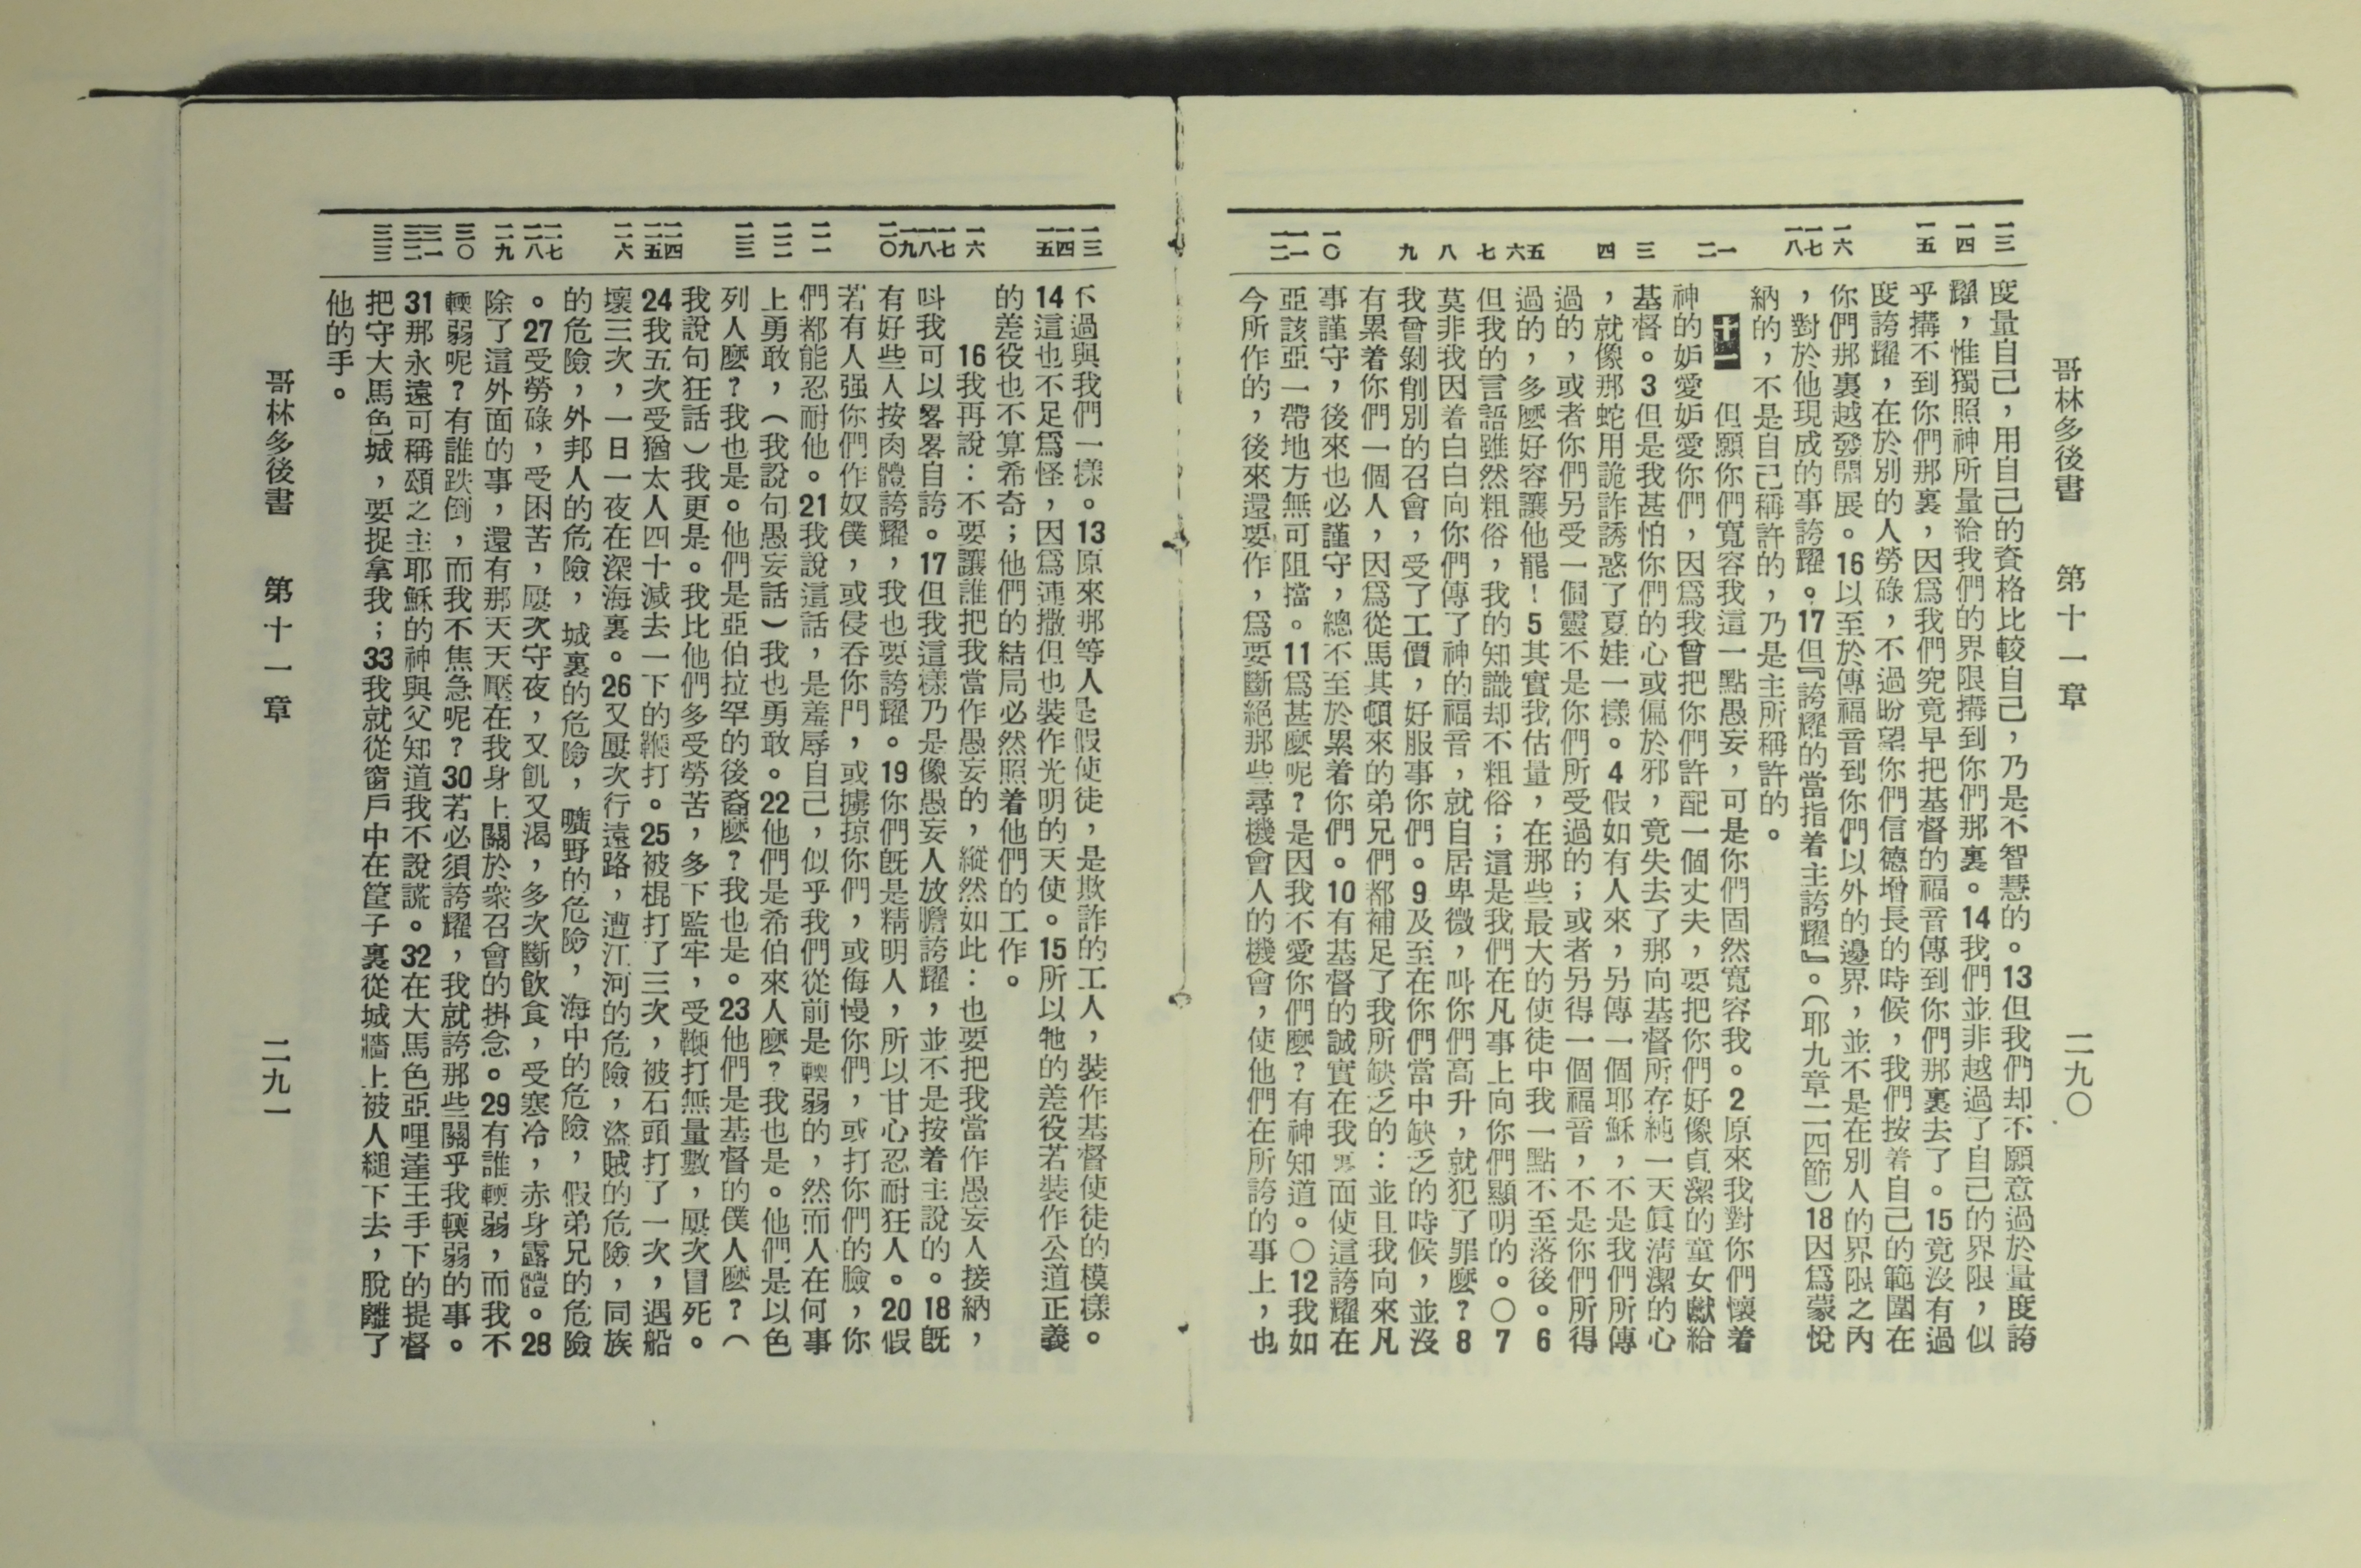 哥林多後書　第十一章　二九〇
一三　一四　一五　一六　一七　一八　一　二　三　四　五　六　七　八　九　一〇　一一　一二
度量自己，用自己的資格比較自己，乃是不智慧的。13但我們却不願意過於量度誇
耀，惟獨照神所量給我們的界限搆到你們那裏。14我們並非越過了自己的界限，似
乎搆不到你們那裏，因爲我們究竟早把基督的福音傳到你們那裏去了。15竟沒有過
度誇耀，在於別的人勞碌，不過盼望你們信德增長的時候，我們按着自己的範圍在
你們那裏越發開展。16以至於傳福音到你們以外的邊界，並不是在別人的界限之內
，對於他現成的事誇耀。17但『誇耀的當指着主誇耀』。（耶九章二四節）18因爲蒙悅
納的，不是自己稱許的，乃是主所稱許的。
十一　但願你們寬容我這一點愚妄，可是你們固然寬容我。2原來我對你們懷着
神的妒愛妒愛你們，因爲我曾把你們許配一個丈夫，要把你們好像貞潔的童女獻給
基督。3但是我甚怕你們的心或偏於邪，竟失去了那向基督所存純一天眞淸潔的心
，就像那蛇用詭詐誘惑了夏娃一樣。4假如有人來，另傳一個耶穌，不是我們所傳
過的，或者你們另受一個靈不是你們所受過的；或者另得一個福音，不是你們所得
過的，多麼好容讓他罷！5其實我估量，在那些最大的使徒中我一點不至落後。6
但我的言語雖然粗俗，我的知識却不粗俗；這是我們在凡事上向你們顯明的。〇7
莫非我因着白白向你們傳了神的福音，就自居卑微，叫你們高升，就犯了罪麼？8
我曾剝削別的召會，受了工價，好服事你們。9及至在你們當中缺乏的時候，並沒
有累着你們一個人，因爲從馬其頓來的弟兄們都補足了我所缺乏的：並且我向來凡
事謹守，後來也必謹守，總不至於累着你們。10有基督的誠實在我裏面使這誇耀在
亞該亞一帶地方無可阻擋。11爲甚麼呢？是因我不愛你們麼？有神知道。〇12我如
今所作的，後來還要作，爲要斷絕那些尋機會人的機會，使他們在所誇的事上，也
一三　一四　一五　一六　一七　一八　一九　二〇　二一　二二　二三　二四　二五　二六　二七　二八　二九　三〇　三一　三二　三三
不過與我們一樣。13原來那等人是假使徒，是欺詐的工人，裝作基督使徒的模樣。
14這也不足爲怪，因爲連撒但也裝作光明的天使。15所以牠的差役若裝作公道正義
的差役也不算希奇；他們的結局必然照着他們的工作。
16我再說：不要讓誰把我當作愚妄的，縱然如此：也要把我當作愚妄人接納，
呌我可以畧畧自誇。17但我這樣乃是像愚妄人放膽誇耀，並不是按着主說的。18旣
有好些人按肉體誇耀，我也要誇耀。19你們旣是精明人，所以甘心忍耐狂人。20假
若有人强你們作奴僕，或侵吞你門，或擄掠你們，或侮慢你們，或打你們的臉，你
們都能忍耐他。21我說這話，是羞辱自己，似乎我們從前是輭弱的，然而人在何事
上勇敢，（我說句愚妄話）我也勇敢。22他們是希伯來人麼？我也是。他們是以色
列人麼？我也是。他們是亞伯拉罕的後裔麼？我也是。23他們是基督的僕人麼？（
我說句狂話）我更是。我比他們多受勞苦，多下監牢，受鞭打無量數，屢次冒死。
24我五次受猶太人四十減去一下的鞭打。25被棍打了三次，被石頭打了一次，遇船
壞三次，一日一夜在深海裏。26又屢次行遠路，遭江河的危險，盜賊的危險，同族
的危險，外邦人的危險，城裏的危險，曠野的危險，海中的危險，假弟兄的危險
。27受勞碌，受困苦，屢次守夜，又飢又渴，多次斷飲食，受寒冷，赤身露體。28
除了這外面的事，還有那天天壓在我身上關於衆召會的掛念。29有誰輭弱，而我不
輭弱呢？有誰跌倒，而我不焦急呢？30若必須誇耀，我就誇那些關乎我輭弱的事。
31那永遠可稱頌之主耶穌的神與父知道我不說謊。32在大馬色亞哩達王手下的提督
把守大馬色城，要捉拿我；33我就從窗戶中在筐子裏從城牆上被人縋下去，脫離了
他的手。
哥林多後書　第十一章　二九一